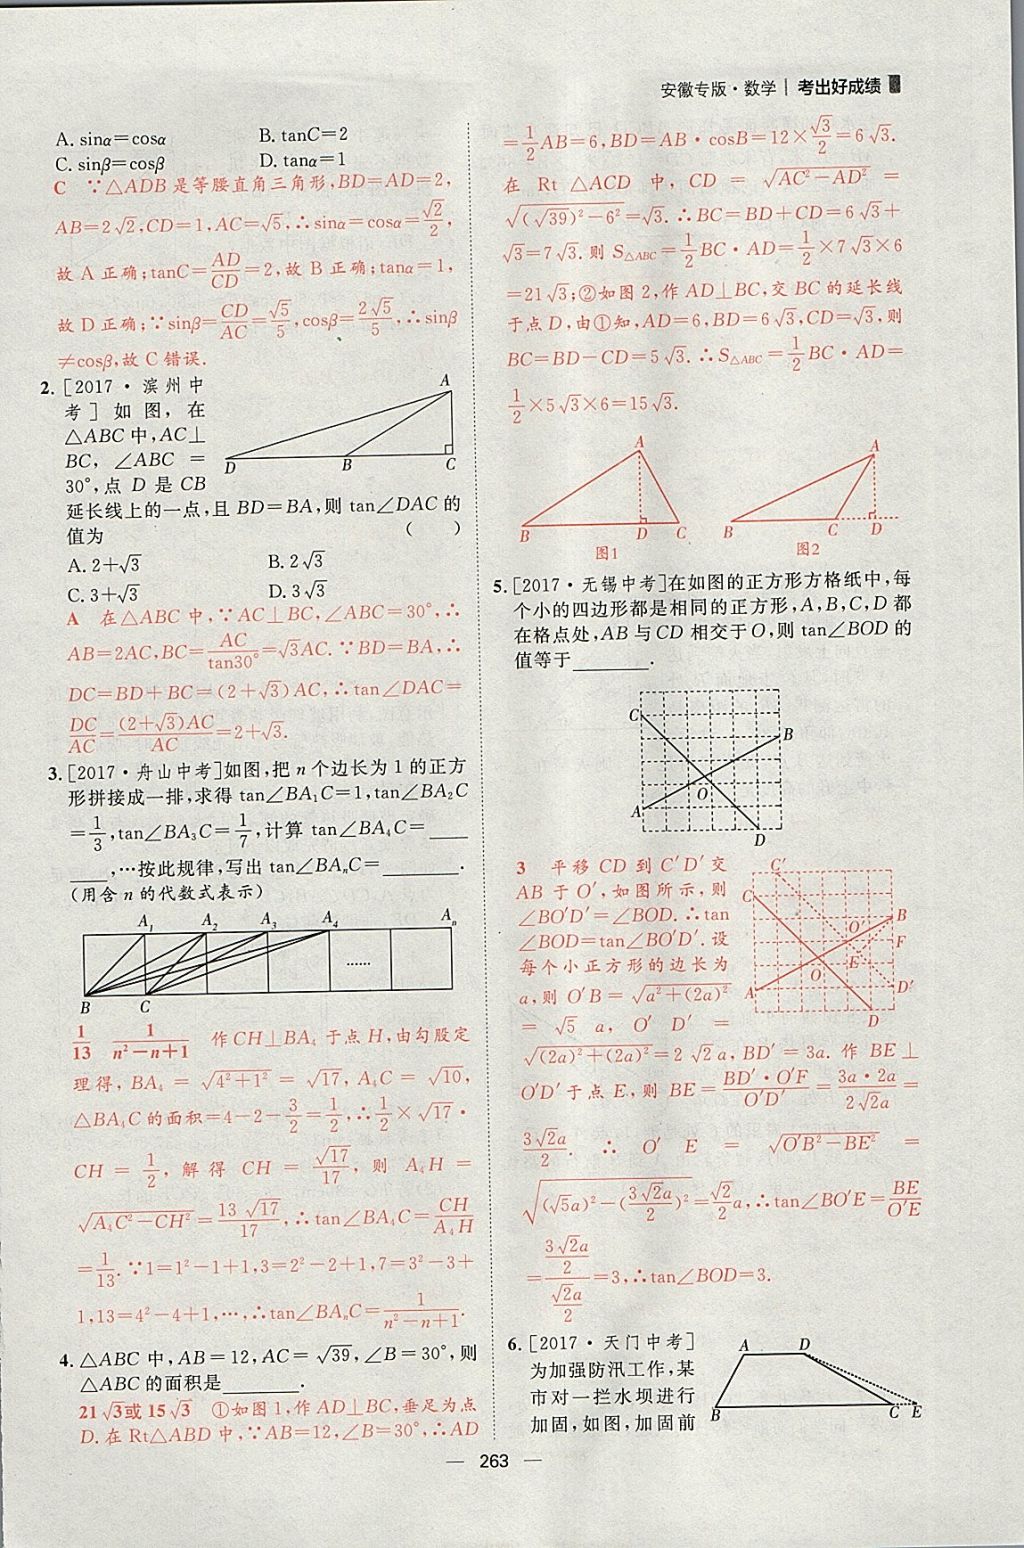 安徽专版·数学 | 考出好成绩
A. sinα=cosα B. tanC=2
C. sinβ=cosβ D. tanα=1
C ∵△ADB是等腰直角三角形,BD=AD=2,
AB=2√2,CD=1,AC=√5,∴sinα=cosα=√2/2,
故A正确;tanC=AD/CD=2,故B正确;tanα=1,
故D正确;∵sinβ=CD/AC=√5/5,cosβ=2√5/5,∴sinβ
≠cosβ,故C错误.
2. [2017·滨州中
考]如图,在
△ABC中,AC⊥
BC,∠ABC=
30°,点D是CB
延长线上的一点,且BD=BA,则tan∠DAC的
值为 ( )
A. 2+√3 B. 2√3
C. 3+√3 D. 3√3
A
D B C
A 在△ABC中,∵AC⊥BC,∠ABC=30°,∴
AB=2AC,BC=AC/tan30°=√3AC.∵BD=BA,∴
DC=BD+BC=(2+√3)AC,∴tan∠DAC=
DC/AC=(2+√3)AC/AC=2+√3.
3. [2017·舟山中考]如图,把n个边长为1的正方
形拼接成一排,求得tan∠BA₁C=1,tan∠BA₂C
=1/3,tan∠BA₃C=1/7,计算tan∠BA₄C=____
____,…按此规律,写出tan∠BAₙC=________.
(用含n的代数式表示)
A₁ A₂ A₃ A₄ Aₙ
……
B C
1/13 1/(n²-n+1) 作CH⊥BA₄于点H,由勾股定
理得,BA₄=√(4²+1²)=√17,A₄C=√10,
△BA₄C的面积=4-2-3/2=1/2,∴1/2×√17·
CH=1/2,解得CH=√17/17,则A₄H=
√(A₄C²-CH²)=13√17/17,∴tan∠BA₄C=CH/A₄H
=1/13.∵1=1²-1+1,3=2²-2+1,7=3²-3+
1,13=4²-4+1,…,∴tan∠BAₙC=1/(n²-n+1).
4. △ABC中,AB=12,AC=√39,∠B=30°,则
△ABC的面积是________.
21√3或15√3 ①如图1,作AD⊥BC,垂足为点
D.在Rt△ABD中,∵AB=12,∠B=30°,∴AD
=1/2AB=6,BD=AB·cosB=12×√3/2=6√3.
在Rt△ACD中,CD=√(AC²-AD²)=
√((√39)²-6²)=√3.∴BC=BD+CD=6√3+
√3=7√3.则S△ABC=1/2BC·AD=1/2×7√3×6
=21√3;②如图2,作AD⊥BC,交BC的延长线
于点D,由①知,AD=6,BD=6√3,CD=√3,则
BC=BD-CD=5√3.∴S△ABC=1/2BC·AD=
1/2×5√3×6=15√3.
A A
B D C B C D
图1 图2
5. [2017·无锡中考]在如图的正方形方格纸中,每
个小的四边形都是相同的正方形,A,B,C,D都
在格点处,AB与CD相交于O,则tan∠BOD的
值等于________.
C
B
O
A
D
3 平移CD到C′D′交
AB于O′,如图所示,则
∠BO′D′=∠BOD.∴tan
∠BOD=tan∠BO′D′.设
每个小正方形的边长为
a,则O′B=√(a²+(2a)²)
=√5a,O′D′=
√((2a)²+(2a)²)=2√2a,BD′=3a.作BE⊥
O′D′于点E,则BE=BD′·O′F/O′D′=3a·2a/2√2a=
3√2a/2.∴O′E=√(O′B²-BE²)=
√((√5a)²-(3√2a/2)²)=√2a/2,∴tan∠BO′E=BE/O′E
=(3√2a/2)/(√2a/2)=3,∴tan∠BOD=3.
C′
C
B
O′
F
E
O
A
D′
D
6. [2017·天门中考]
为加强防汛工作,某
市对一拦水坝进行
加固,如图,加固前
A D
B C E
— 263 —